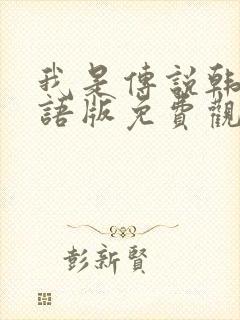 我是傳說韓
語版免費觀
彭新賢